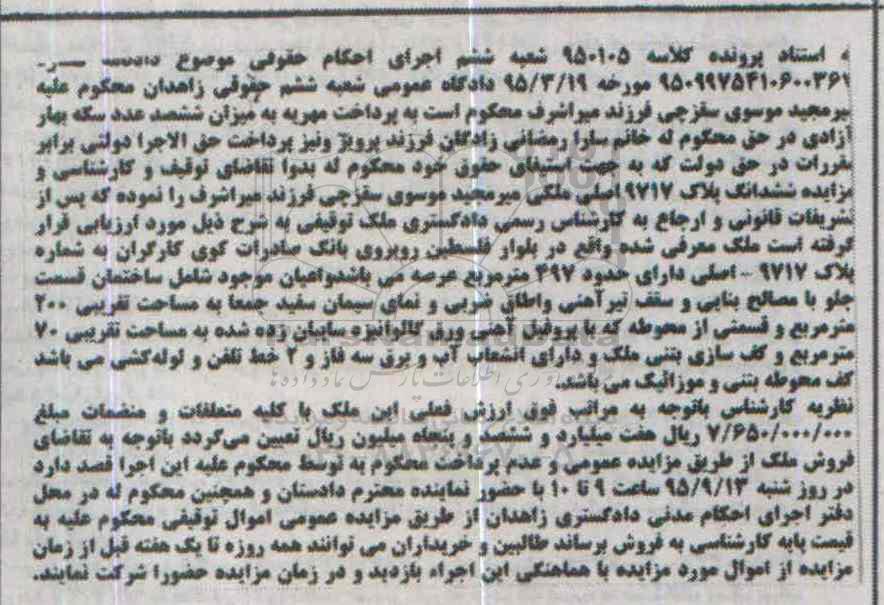 ه استناد پرونده کلاسه ۹۵۰۱۰۵ شعبه ششم اجرای احکام حقوقی موضوع دادنامه
۹۵۰۹۹۷۵۴۱۰۶۰۰۳۶۱ مورخه ۹۵/۳/۱۹ دادگاه عمومی شعبه ششم حقوقی زاهدان محکوم علیه
میرمجید موسوی سقزچی فرزند میراشرف محکوم است به پرداخت مهریه به میزان ششصد عدد سکه بهار
آزادی در حق محکوم له خانم سارا رمضانی زادگان فرزند پرویز ونیز پرداخت حق الاجرا دولتی برابر
مقررات در حق دولت که به جهت استیفای حقوق خود محکوم له بدوا تقاضای توقیف و کارشناسی و
مزایده ششدانگ پلاک ۹۷۱۷ اصلی ملکی میرمجید موسوی سقزچی فرزند میراشرف را نموده که پس از
تشریفات قانونی و ارجاع به کارشناس رسمی دادگستری ملک توقیفی به شرح ذیل مورد ارزیابی قرار
گرفته است ملک معرفی شده واقع در بلوار فلسطین روبروی بانک صادرات کوی کارگران به شماره
پلاک ۹۷۱۷ - اصلی دارای حدود ۴۹۷ مترمربع عرصه می باشدواعیان موجود شامل ساختمان قسمت
جلو با مصالح بنایی و سقف تیرآهنی واطاق ضربی و نمای سیمان سفید جمعا به مساحت تقریبی ۲۰۰
مترمربع و قسمتی از محوطه که با پروفیل آهنی ورق گالوانیزه سایبان زده شده به مساحت تقریبی ۷۰
مترمربع و کف سازی بتنی ملک و دارای انشعاب آب و برق سه فاز و ۲ خط تلفن و لوله‌کشی می باشد
کف محوطه بتنی و موزائیک می باشد.
نظریه کارشناس باتوجه به مراتب فوق ارزش فعلی این ملک با کلیه متعلقات و منضمات مبلغ
۷/۶۵۰/۰۰۰/۰۰۰ ریال هفت میلیارد و ششصد و پنجاه میلیون ریال تعیین می‌گردد باتوجه به تقاضای
فروش ملک از طریق مزایده عمومی و عدم پرداخت محکوم به توسط محکوم علیه این اجرا قصد دارد
در روز شنبه ۹۵/۹/۱۳ ساعت ۹ تا ۱۰ با حضور نماینده محترم دادستان و همچنین محکوم له در محل
دفتر اجرای احکام مدنی دادگستری زاهدان از طریق مزایده عمومی اموال توقیفی محکوم علیه به
قیمت پایه کارشناسی به فروش برساند طالبین و خریداران می توانند همه روزه تا یک هفته قبل از زمان
مزایده از اموال مورد مزایده با هماهنگی این اجراء بازدید و در زمان مزایده حضورا شرکت نمایند.